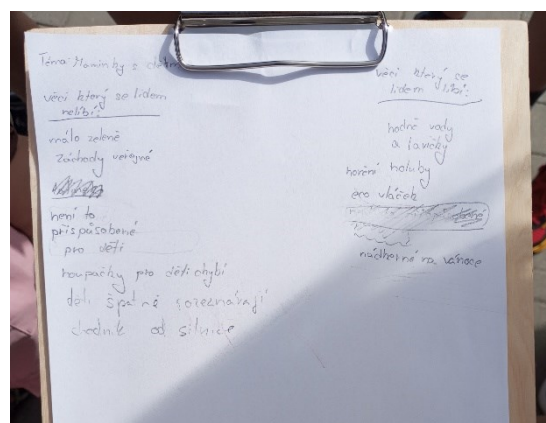 Téma: Maminky s dětmi
věci který se lidem
nelíbí:
málo zeleně
záchody veřejné
není to
přispůsobené
pro děti
houpačky pro děti chybí
děti špatně rozeznávají
chodník od silnice
věci který se
lidem líbí:
hodně vody
a lavičky
honění holuby
eco vláček
nádherné na vánoce